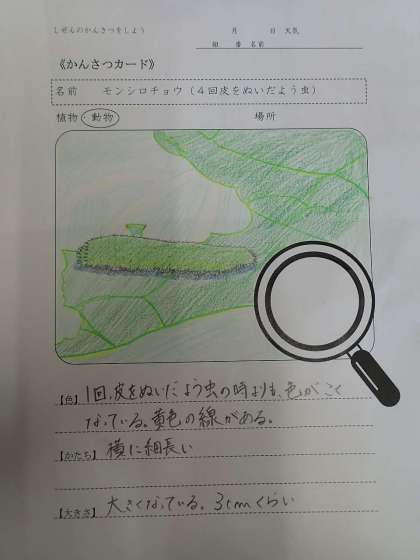 しぜんのかんさつをしよう　月　日　天気
組　番　名前
《かんさつカード》
名前　モンシロチョウ（４回皮をぬいだよう虫）
植物・動物　場所
【色】1回、皮をぬいだよう虫の時よりも、色がこく
なっている。黄色の線がある。
【かたち】横に細長い
【大きさ】大きくなっている。3cmくらい